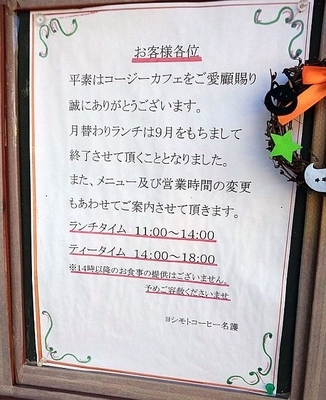 お客様各位
平素はコージーカフェをご愛顧賜り
誠にありがとうございます。
月替わりランチは9月をもちまして
終了させて頂くこととなりました。
また、メニュー及び営業時間の変更
もあわせてご案内させて頂きます。
ランチタイム 11:00～14:00
ティータイム 14:00～18:00
※14時以降のお食事の提供はございません。
予めご容赦くださいませ
ヨシモトコーヒー名護